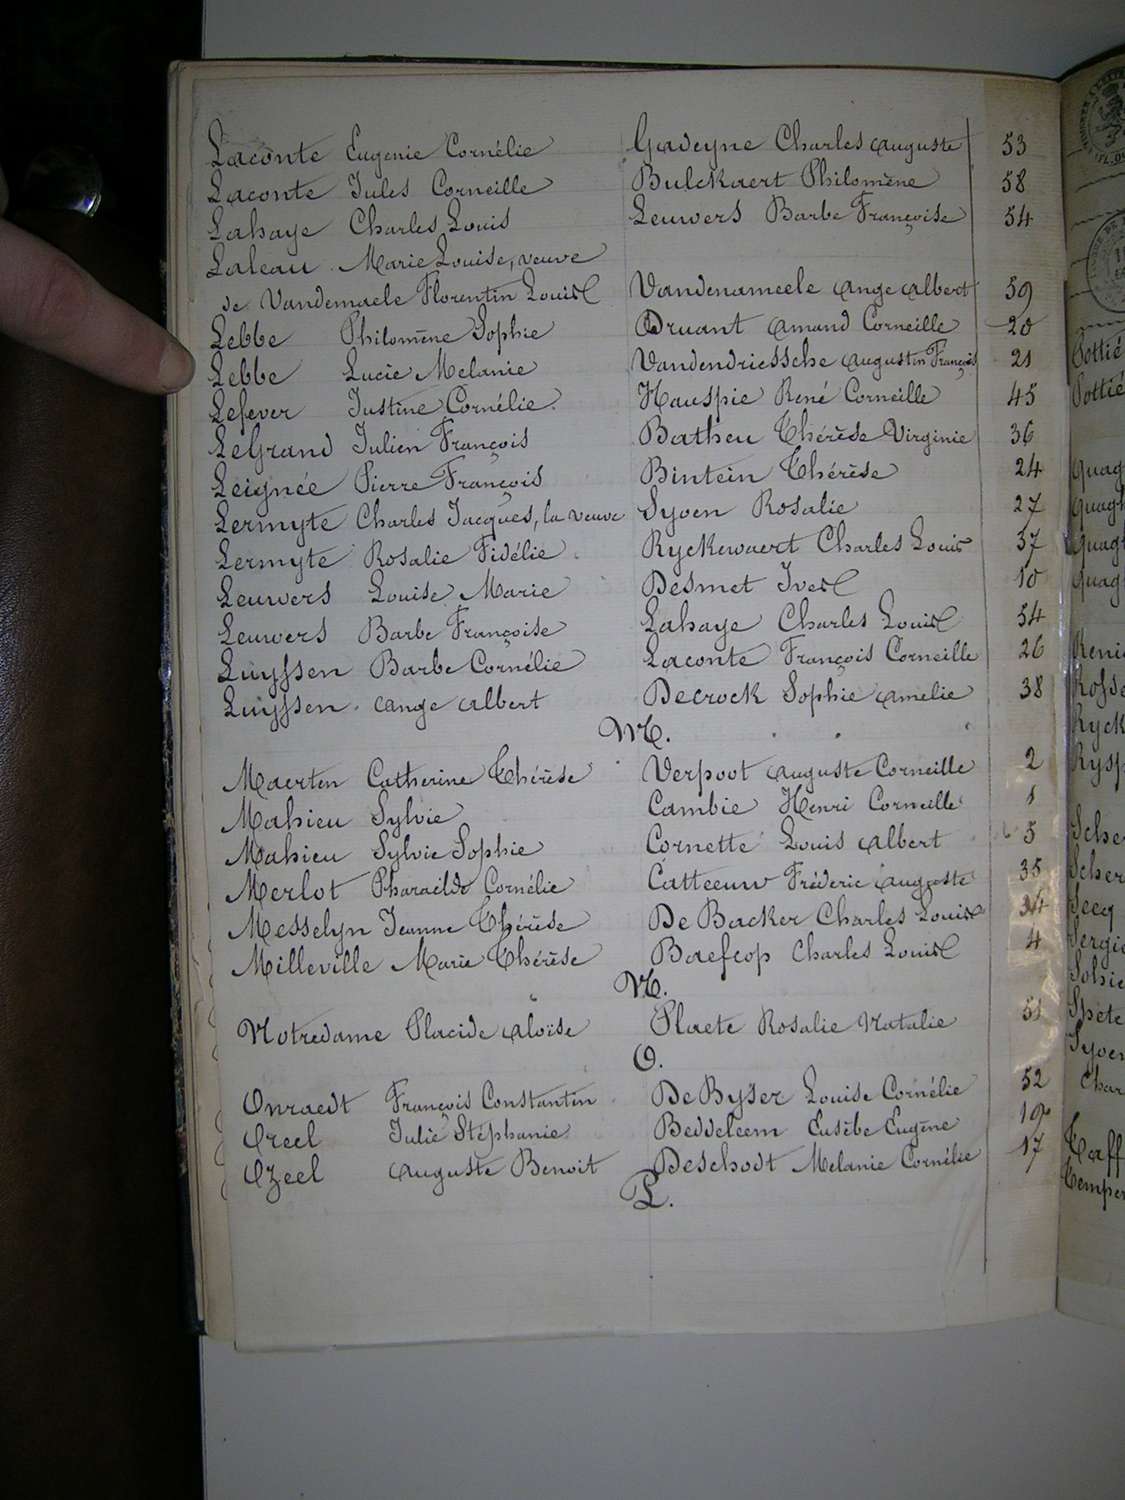 Laconte Eugenie Cornélie Gadeyne Charles Auguste 53
Laconte Jules Corneille Bulckaert Philomène 58
Lahaye Charles Louis Leuwers Barbe Françoise 54
Laleau Marie Louise, veuve
de Vandemaele Florentin Louis Vandenameele Ange Albert 59
Lebbe Philomène Sophie Druant Amand Corneille 20
Lebbe Lucie Melanie Vandendriessche Augustin François 21
Lefever Justine Cornélie Hauspie René Corneille 45
LeGrand Julien François Batheu Thérèse Virginie 36
Leignée Pierre François Bintein Thérèse 24
Lermyte Charles Jacques, la veuve Syoen Rosalie 27
Lermyte Rosalie Fidélie Ryckewaert Charles Louis 37
Leuwers Louise Marie Desmet Ives 10
Leuwers Barbe Françoise Lahaye Charles Louis 54
Luyssen Barbe Cornélie Laconte François Corneille 26
Luyssen Ange Albert Decrock Sophie Amelie 38
M.
Maerten Catherine Thérèse Verpoot Auguste Corneille 2
Mahieu Sylvie Cambie Henri Corneille 1
Mahieu Sylvie Sophie Cornette Louis Albert 5
Merlot Pharaïlde Cornélie Catteeuw Fréderic Auguste 35
Messelyn Jeanne Thérèse De Backer Charles Louis 34
Milleville Marie Thérèse Baefcop Charles Louis 4
N.
Notredame Placide Aloïse Plaete Rosalie Natalie 51
O.
Onraedt François Constantin DeByser Louise Cornélie 52
Oreel Julie Stéphanie Beddeleem Eusèbe Eugène 19
Ozeel Auguste Benoit Deschodt Melanie Cornélie 17
P.